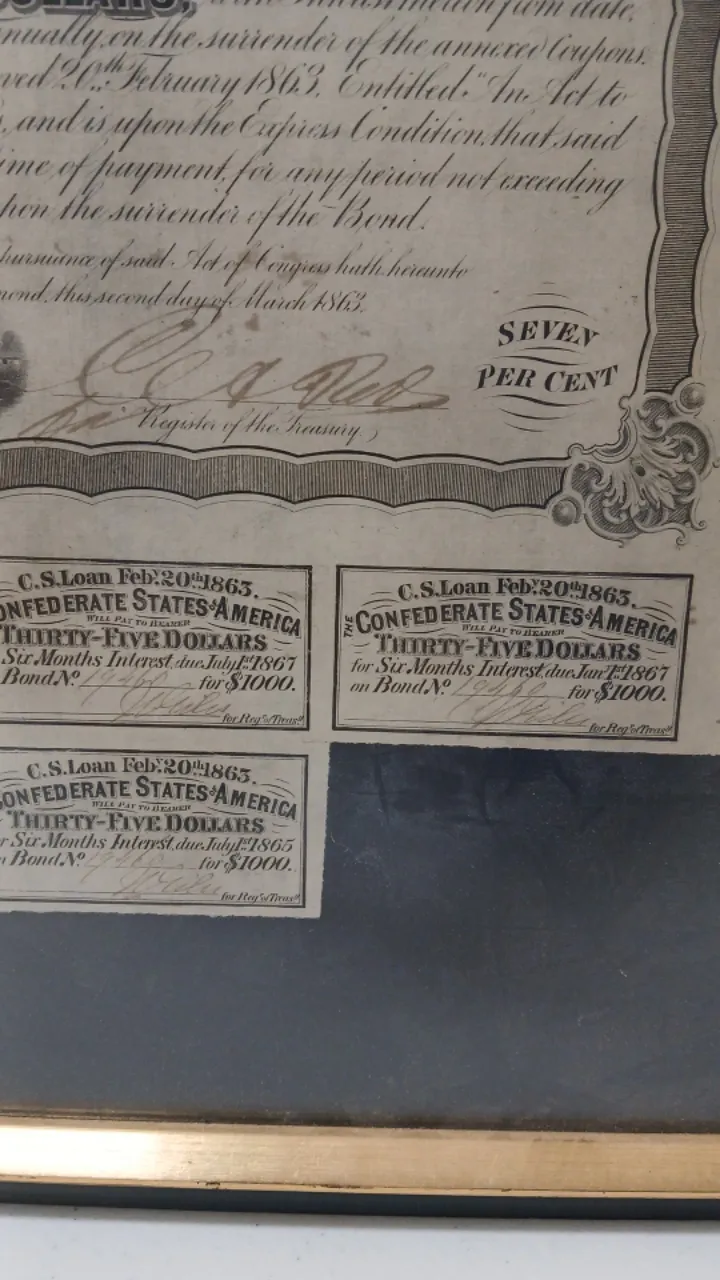 DOLLARS,
nually, on the surrender of the annexed Coupons.
ved 20th February 1863, Entitled "An Act to
, and is upon the Express Condition, that said
ime of payment, for any period not exceeding
pon the surrender of the Bond.
pursuance of said Act of Congress hath hereunto
mond, this second day of March 1863.
SEVEN
PER CENT
Register of the Treasury.
C.S. Loan Feby. 20th 1863.
CONFEDERATE STATES OF AMERICA
WILL PAY TO BEARER
THIRTY-FIVE DOLLARS
Six Months Interest, due July 1st 1867
Bond No. for $1000.
for Regr. of Treasy.
C.S. Loan Feby. 20th 1863.
THE CONFEDERATE STATES OF AMERICA
WILL PAY TO BEARER
THIRTY-FIVE DOLLARS
for Six Months Interest, due Jany. 1st 1867
on Bond No. for $1000.
for Regr. of Treasy.
C.S. Loan Feby. 20th 1863.
CONFEDERATE STATES OF AMERICA
WILL PAY TO BEARER
THIRTY-FIVE DOLLARS
r Six Months Interest, due July 1st 1865
n Bond No. for $1000.
for Regr. of Treasy.